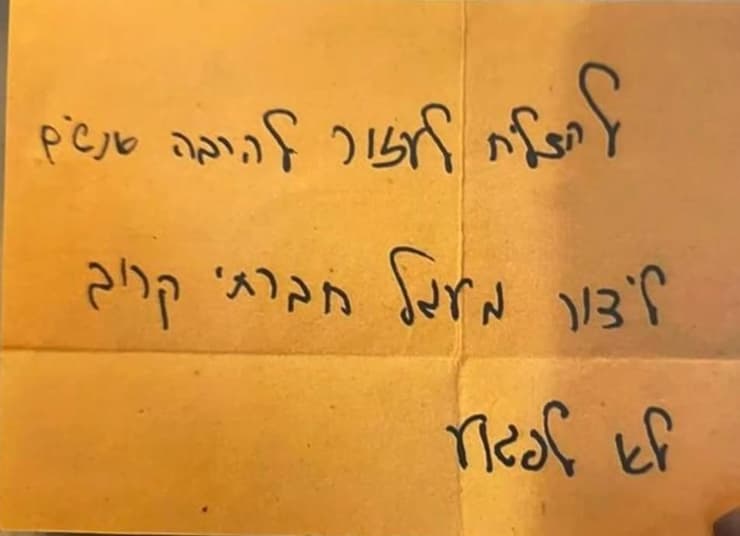 להצליח לעזור להרבה אנשים
ליצור מעגל חברתי קרוב
לא לפגוע